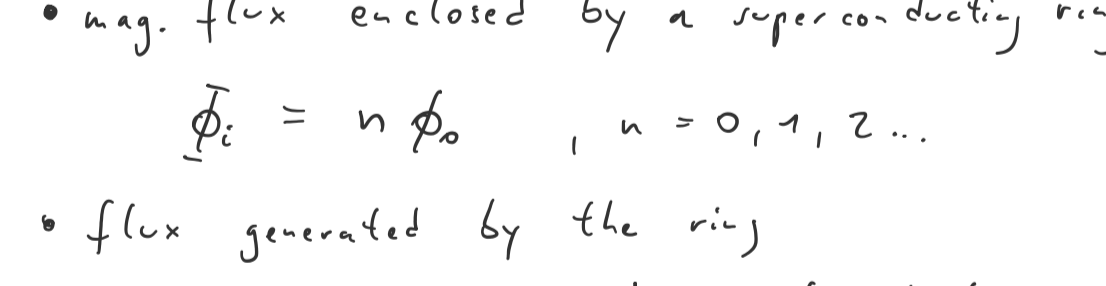 • mag. flux enclosed by a superconducting
Φi = n ϕ0 , n = 0, 1, 2 ...
• flux generated by the ring